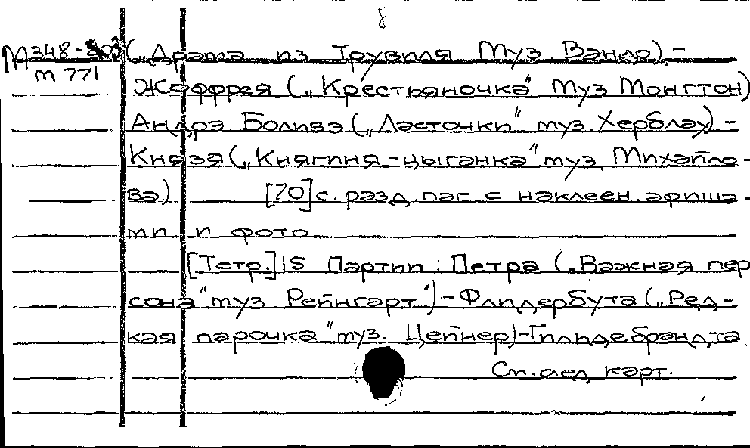 8
М348-803 („Драма из Трувиля Муз Ванло)-
м 771
Жоффрея („Крестьяночка" муз Монгтон)
Андрэ Боливэ („Ласточки" муз. Херблау)-
Князя („Княгиня-цыганка" муз. Михайло-
ва) [70] с. разд. паг. с наклеен. афиша-
ми и фото
[Тетр.] 15 Партии: Петра („Важная пер
сона" муз Рейнгарт")-Флидербута („Ред-
кая парочка" муз. Цейнер)-Гильдебрандта
См. след. карт.